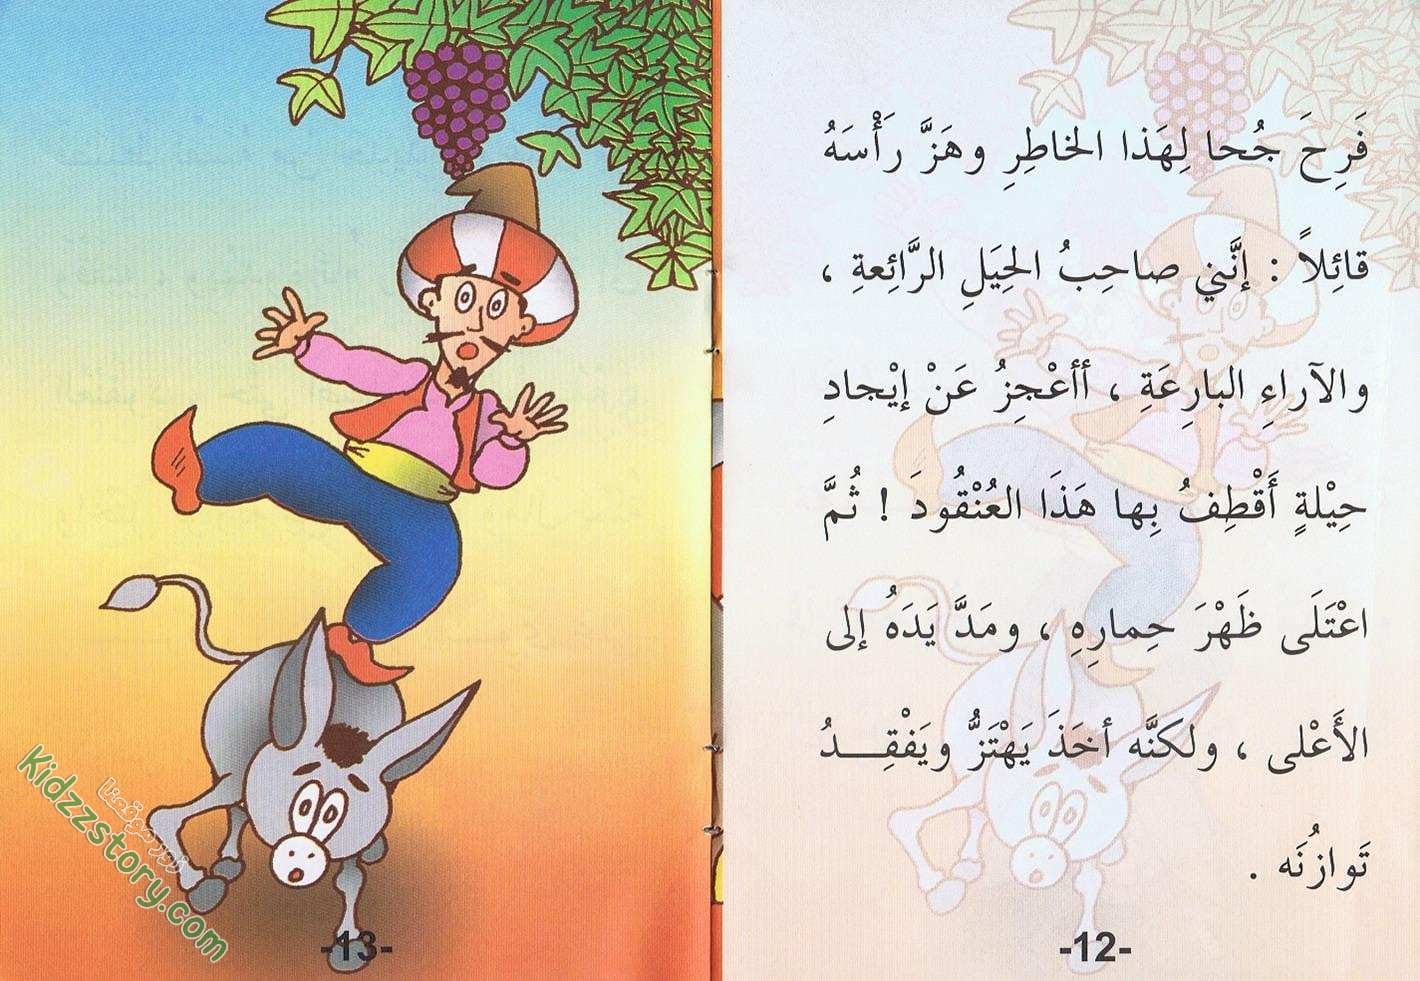 فَرِحَ جُحا لِهَذا الخاطِرِ وهَزَّ رَأْسَهُ
قائِلاً : إنَّني صاحِبُ الحِيَلِ الرَّائِعةِ ،
والآراءِ البارِعَةِ ، أأعْجِزُ عَنْ إيْجادِ
حِيْلةٍ أَقْطِفُ بِها هَذَا العُنْقُودَ ! ثُمَّ
اعْتَلَى ظَهْرَ حِمارِهِ ، ومَدَّ يَدَهُ إلى
الأَعْلى ، ولكنَّه أخَذَ يَهْتَزُّ ويَفْقِـــدُ
تَوازُنَه .
-12-
-13-
زوروا موقعنا
Kidzzstory.com